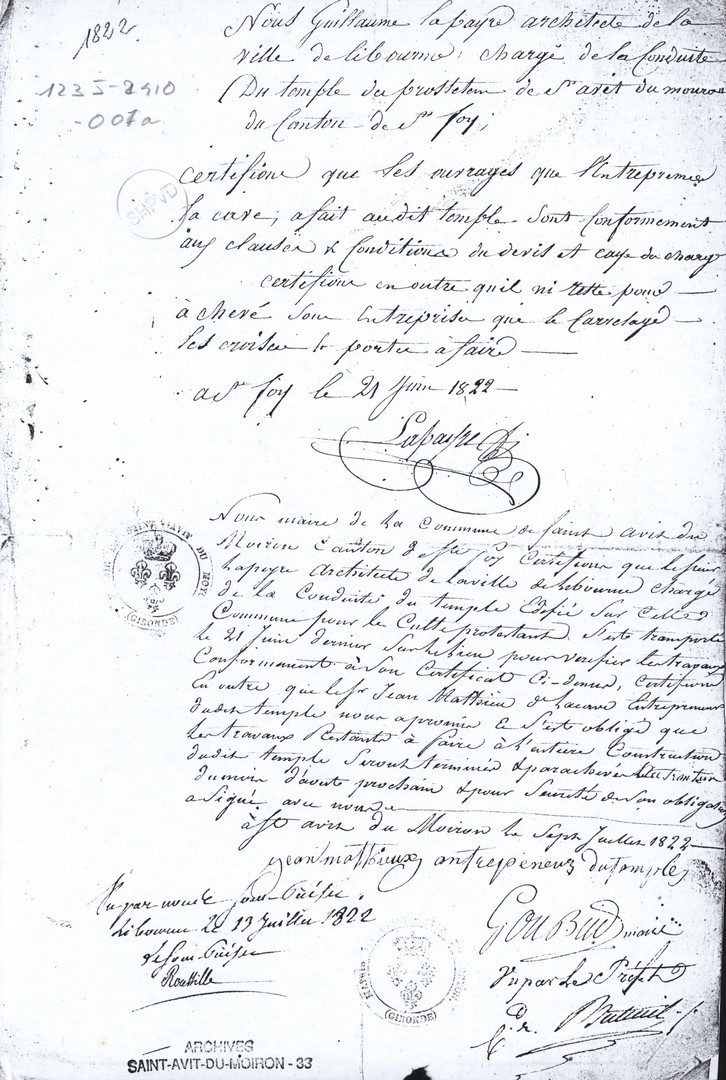 1822
123 J-2410
-007a
Nous Guillaume lapeyre architecte de la
ville de libourne; chargé de la Conduite
Du temple du prostetem de St avit du mouron
du Canton de Ste foy;
SHPVD
certifions que les ouvrages que l'entrepreneur
la cave, a fait audit temple sont Conformement
aux clauses & Conditions du devis et caye du charge
certifions en outre quil ni reste pour
à chevé son Entreprise que le Carrelage
les croisée & portes a faire
a Ste foy le 21 Juin 1822
Lapeyre
SAINT AVIT DU MOY
(GIRONDE)
Nous maire de La Commune de saint avit du
Moiron Canton de Ste foy Certifions que le sieur
Lapeyre Architecte de la ville de libourne chargé
de la Conduite du temple Edifié Sur Cette d
Commune pour le Culte protestant S'este transporté
le 21 Juin dernier Sur le lieu pour verifier les travaux
Conformément à Son Certificat Ci-dessus, Certifions
En outre que le Sr Jean Mathieu de Lacave Entrepreneur
dudit temple nous a promis & S'este obligé que
les travaux Restants à faire à l'entiere Construction
dudit temple Seront terminés & parachevés
du mois d'aoute prochain & pour Sureté de Son obligation
a Signé avec nous
à St avit du Moiron le Sept Juillet 1822
jean mathieux antrepeneur du temple
Vu par nous Sous-Préfet
Libourne le 13 Juillet 1822
Le Sous-Préfet
GOUBIND maire
Vu par Le Préfet
(GIRONDE)
ARCHIVES
SAINT-AVIT-DU-MOIRON - 33